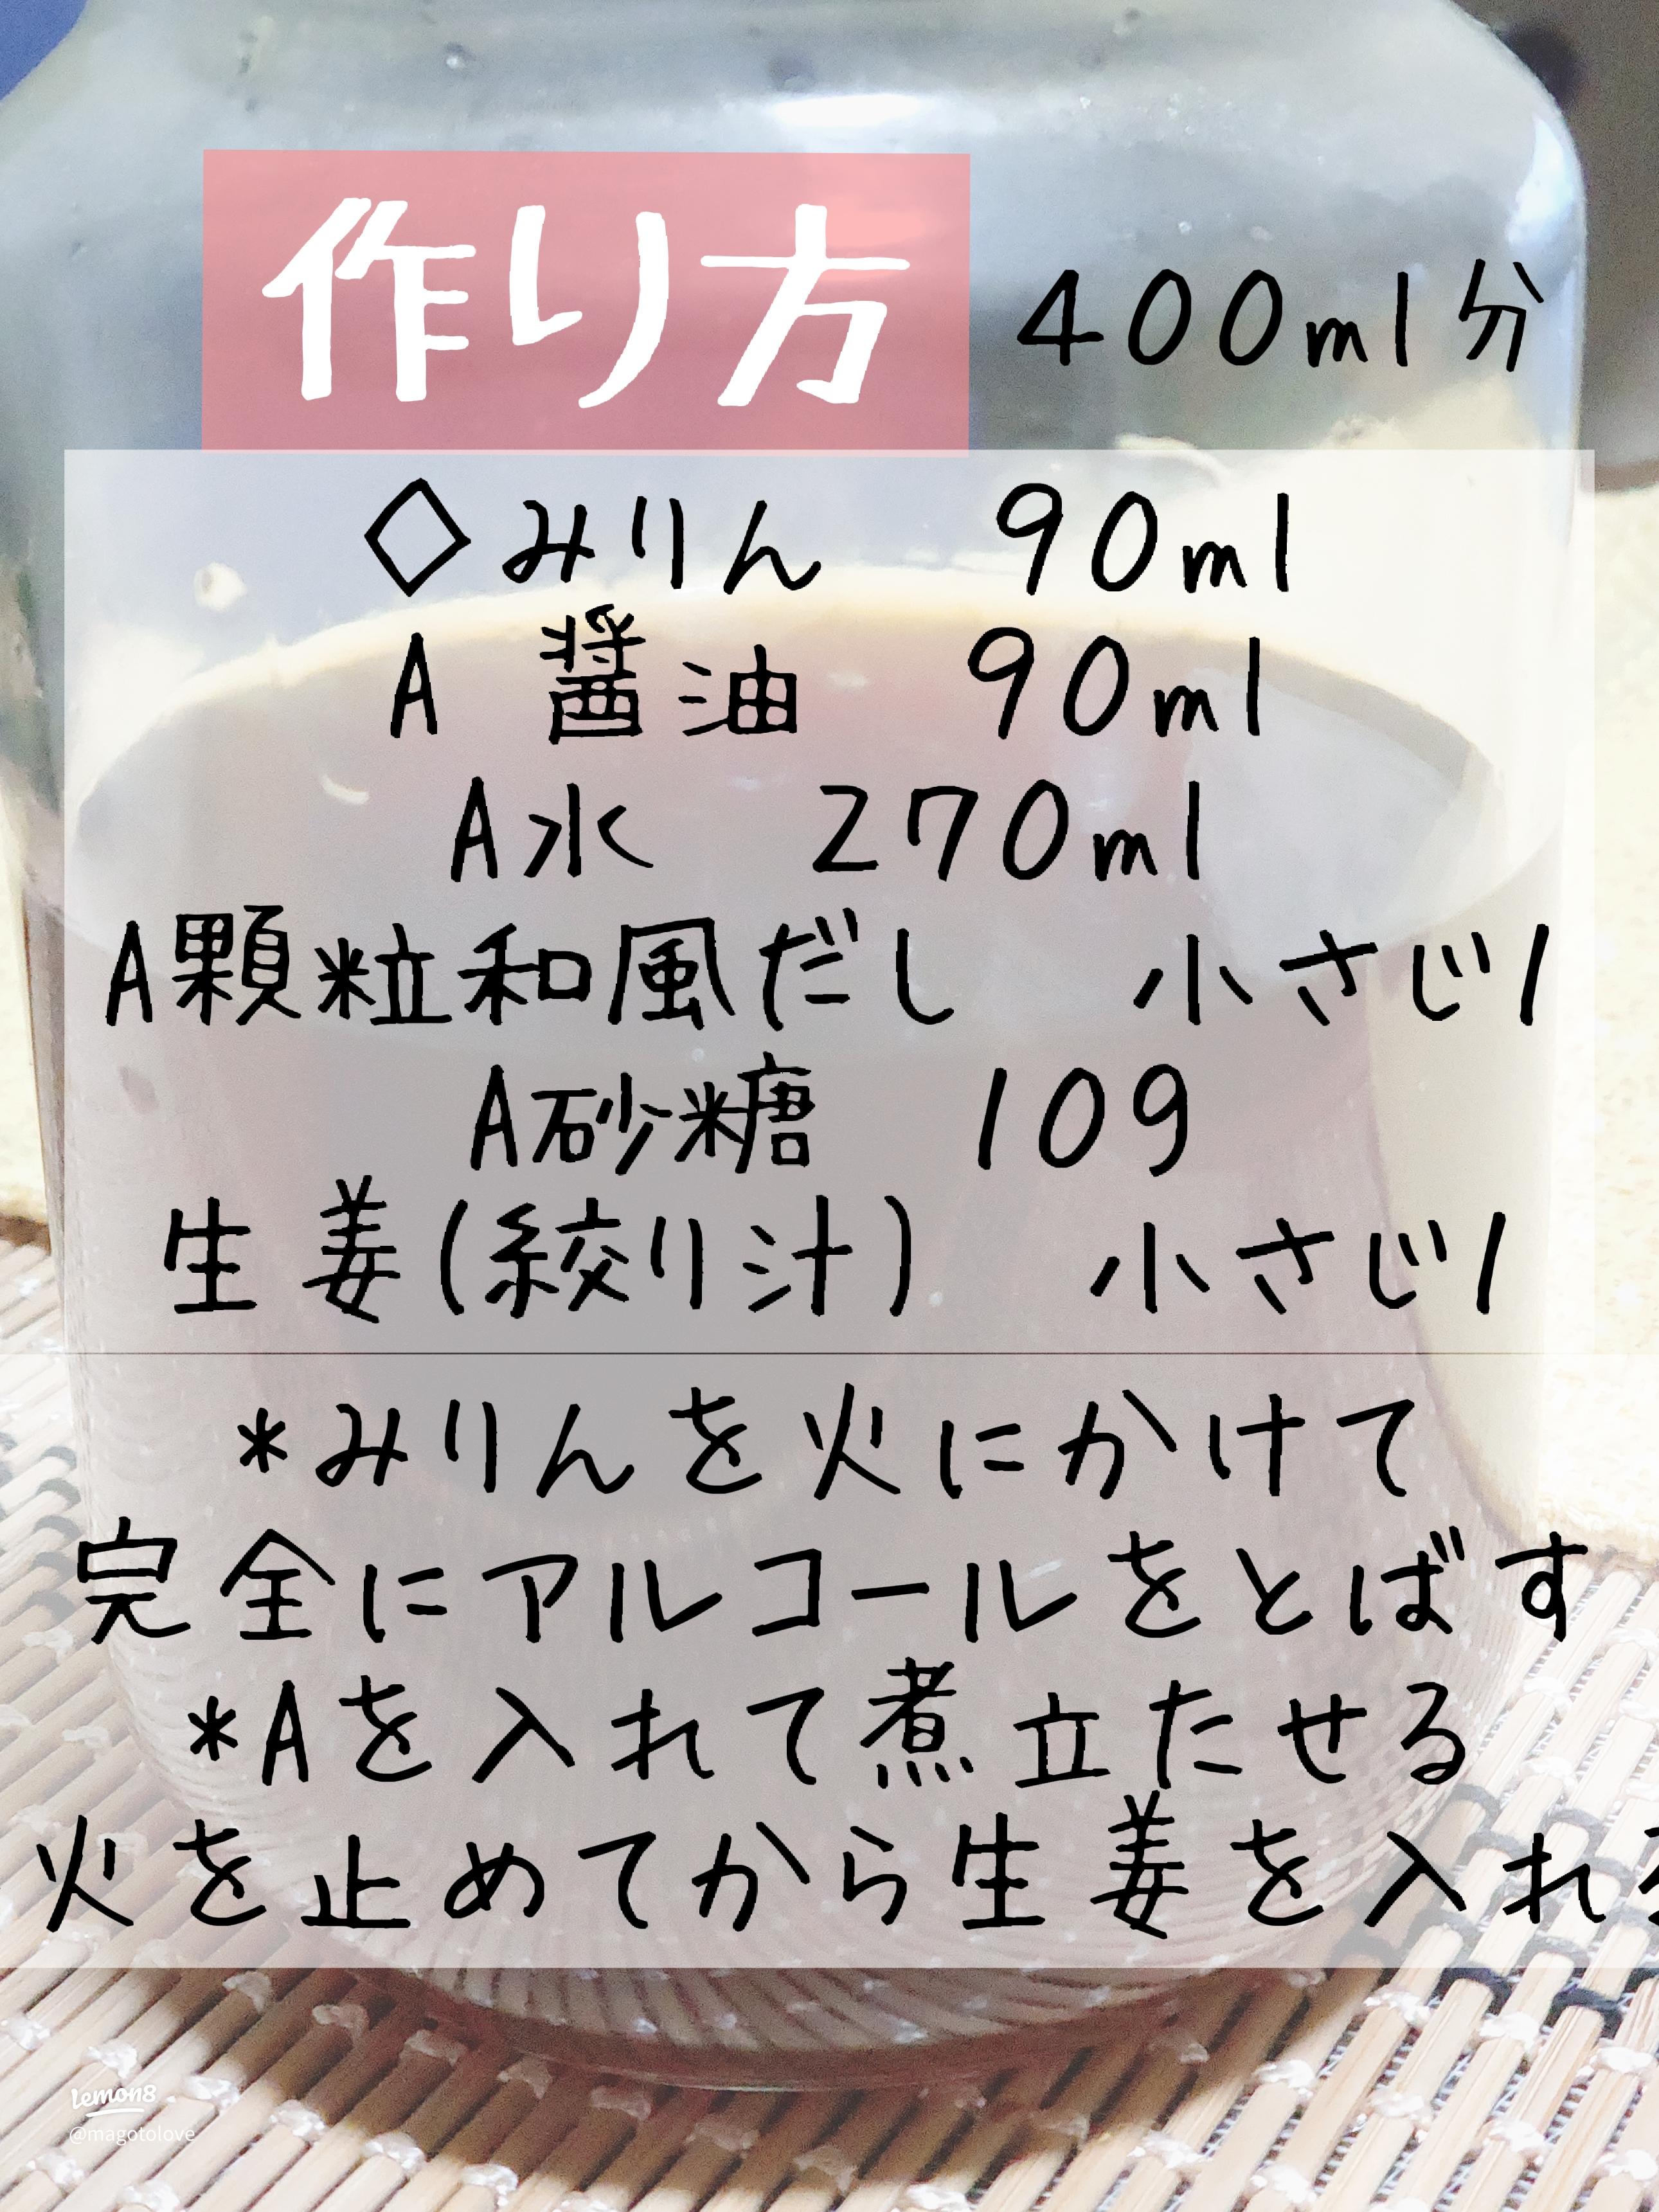 作り方 400ml分
◇みりん 90ml
A 醤油 90ml
A水 270ml
A顆粒和風だし 小さじ1
A砂糖 10g
生姜(絞り汁) 小さじ1
*みりんを火にかけて
完全にアルコールをとばす
*Aを入れて煮立たせる
火を止めてから生姜を入れる
lemon8
@magotolove